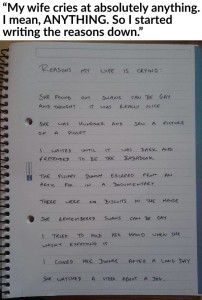 “My wife cries at absolutely anything.
I mean, ANYTHING. So I started
writing the reasons down.”
REASONS MY WIFE IS CRYING:
SHE FOUND OUT SWANS CAN BE GAY
AND THOUGHT IT WAS REALLY NICE
SHE WAS HUNGOVER AND SAW A PICTURE
OF A PIGLET
I WAITED UNTIL IT WAS DARK AND
PRETENDED TO BE THE BABADOOK
THE FLUFFY DUCK ESCAPED FROM AN
IN A DOCUMENTARY
THERE WERE NO BISCUITS IN THE HOUSE
SHE REMEMBERED SWANS CAN BE GAY
I TRIED TO HOLD HER HAND WHEN SHE
WASN'T EXPECTING IT
I COOKED HER DINNER AFTER A LONG DAY
SHE WATCHED A VIDEO ABOUT A DOG.